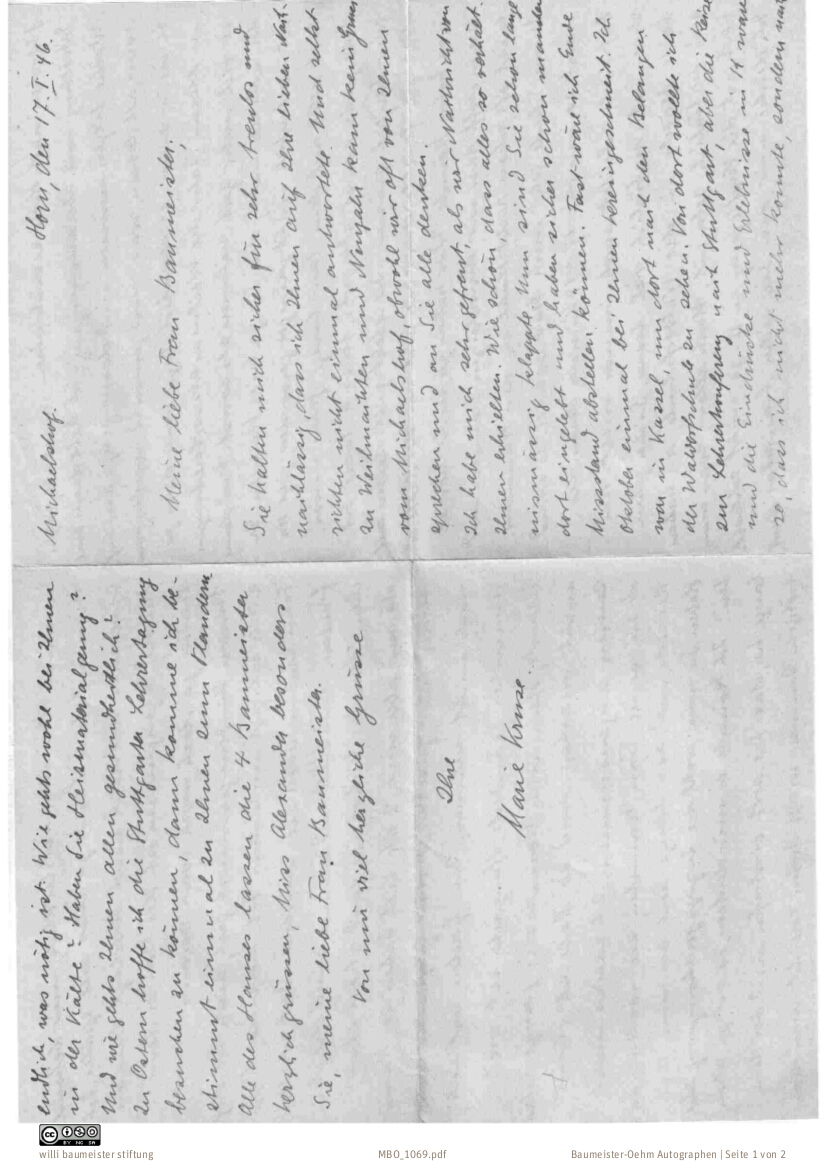 Michaelshof.
Horn, den 17.I.46.
Meine liebe Frau Baumeister,
Sie halten mich sicher für sehr treulos und
nachlässig, dass ich Ihnen auf Ihre lieben Nach-
richten nicht einmal antwortete. Und selbst
zu Weihnachten und Neujahr kam kein Gruss
vom Michaelshof, obwohl wir oft von Ihnen
sprechen und an Sie alle denken.
Ich habe mich sehr gefreut, als wir Nachricht von
Ihnen erhielten. Wie schön, dass alles so verhält-
nismässig klappte. Nun sind Sie schon lange
dort eingelebt und haben sicher schon manchen
Missstand abstellen können. Fast wäre ich Ende
Oktober einmal bei Ihnen hereingeschneit. Ich
war in Kassel, um dort nach den Belangen
der Waldorfschule zu sehen. Von dort wollte ich
zur Lehrerkonferenz nach Stuttgart, aber die Reise
und die Eindrücke und Erlebnisse in K waren
so, dass ich nicht mehr konnte, sondern nach
endlich, was nötig ist. Wie gehts wohl bei Ihnen
in der Kälte? Haben Sie Heizmaterial genug?
Und wie gehts Ihnen allen gesundheitlich?
Zu Ostern hoffe ich die Stuttgarter Lehrertagung
besuchen zu können, dann komme ich be-
stimmt einmal zu Ihnen zum Plaudern
Alle des Hauses lassen die 4 Baumeister
herzlich grüssen, Miss Alexander besonders
Sie, meine liebe Frau Baumeister.
Von mir viel herzliche Grüsse
Ihre
Marie Kruse.
CC BY NC SA
willi baumeister stiftung
MBO_1069.pdf
Baumeister-Oehm Autographen | Seite 1 von 2